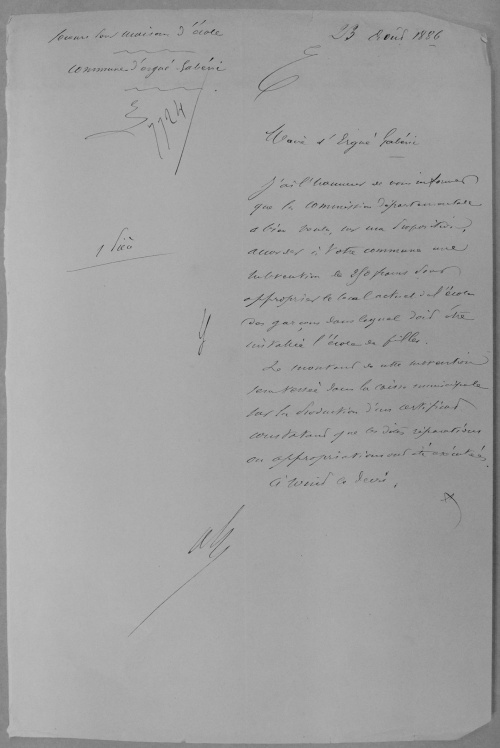 Secours pour maison d'école
commune d'Ergué-Gabéric
E 7724
1 Pièce
23 Août 1886
Maire d'Ergué Gabéric
J'ai l'honneur de vous informer
que la commission départementale
a bien voulu, sur ma proposition,
accorder à votre commune une
subvention de 250 francs pour
approprier le local actuel de l'école
des garçons dans lequel doit être
installée l'école de filles.
Le montant de cette subvention
sera versé dans la caisse municipale
sur la production d'un certificat
constatant que les dites réparations
ou appropriations ont été exécutées.